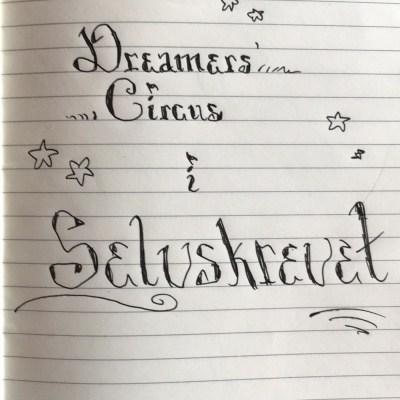 Dreamers'
Circus
i
Selvskrevet